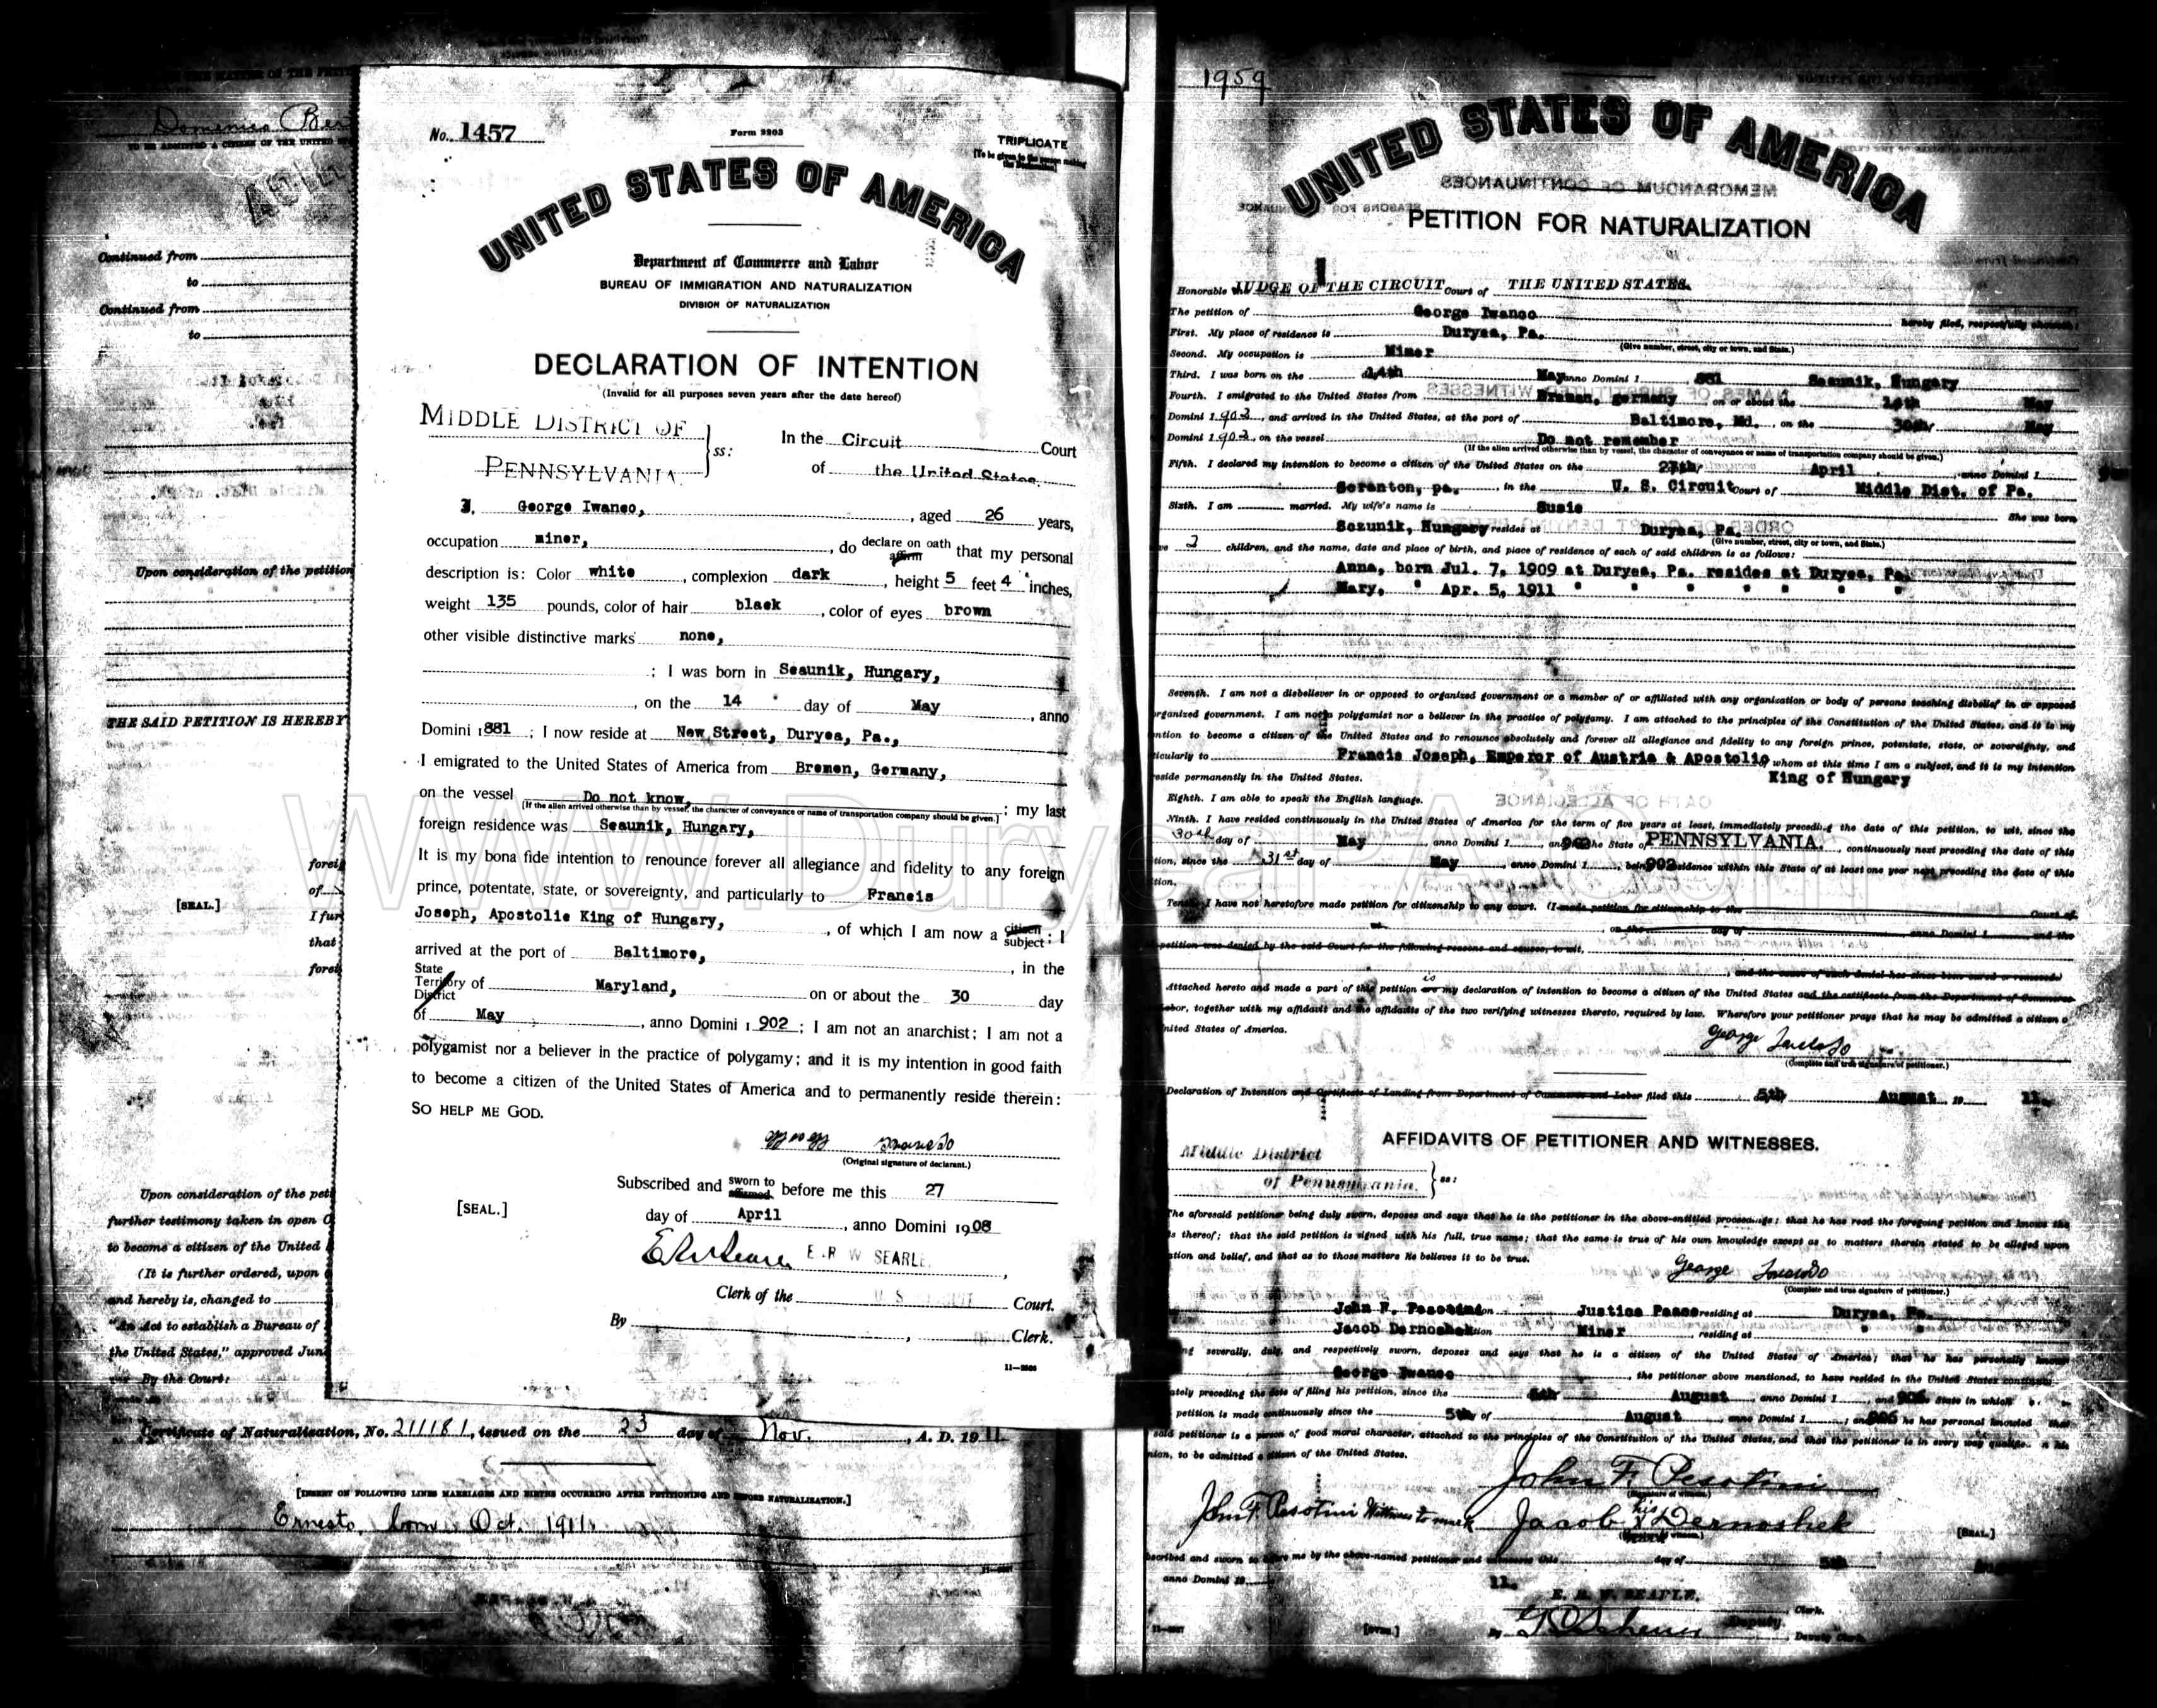 Domenico
Continued from
to
Continued from
to
Upon consideration of the petition
THE SAID PETITION IS HEREBY
foreig
of
[SEAL.]
I fur
that
forei
Upon consideration of the pet
further testimony taken in open C
to become a citizen of the United
(It is further ordered, upon
and hereby is, changed to
"An Act to establish a Bureau of
the United States," approved Jun
By the Court:
Certificate of Naturalization, No. 211181, issued on the 23 day of Nov., A. D. 1911
[INSERT ON FOLLOWING LINES MARRIAGES AND BIRTHS OCCURRING AFTER PETITIONING AND BEFORE NATURALIZATION.]
Ernesto, born Oct. 1911
No. 1457
Form 2203
TRIPLICATE
[To be given to the person making the Declaration]
UNITED STATES OF AMERICA
Department of Commerce and Labor
BUREAU OF IMMIGRATION AND NATURALIZATION
DIVISION OF NATURALIZATION
DECLARATION OF INTENTION
(Invalid for all purposes seven years after the date hereof)
MIDDLE DISTRICT OF
PENNSYLVANIA
ss:
In the Circuit Court
of the United States.
I, George Iwanco, aged 26 years,
occupation miner, do declare on oath affirm that my personal
description is: Color white, complexion dark, height 5 feet 4 inches,
weight 135 pounds, color of hair black, color of eyes brown
other visible distinctive marks none,
; I was born in Seaunik, Hungary,
on the 14 day of May, anno
Domini 1881; I now reside at New Street, Duryea, Pa.,
I emigrated to the United States of America from Bremen, Germany,
on the vessel Do not know, ; my last
[If the alien arrived otherwise than by vessel, the character of conveyance or name of transportation company should be given.]
foreign residence was Seaunik, Hungary,
It is my bona fide intention to renounce forever all allegiance and fidelity to any foreign
prince, potentate, state, or sovereignty, and particularly to Francis
Joseph, Apostolic King of Hungary, , of which I am now a citizen subject; I
arrived at the port of Baltimore, , in the
State Territory District of Maryland, on or about the 30 day
of May, anno Domini 1902; I am not an anarchist; I am not a
polygamist nor a believer in the practice of polygamy; and it is my intention in good faith
to become a citizen of the United States of America and to permanently reside therein:
SO HELP ME GOD.
(Original signature of declarant.)
Subscribed and sworn to affirmed before me this 27
[SEAL.]
day of April, anno Domini 1908
E R W SEARLE
Clerk of the U. S. Court.
By , Clerk.
1959
UNITED STATES OF AMERICA
MEMORANDUM OF CONTINUANCES
REASONS FOR CONTINUANCE
PETITION FOR NATURALIZATION
Honorable the JUDGE OF THE CIRCUIT Court of THE UNITED STATES.
The petition of George Iwanco hereby filed, respectfully showeth:
First. My place of residence is Duryea, Pa.
(Give number, street, city or town, and State.)
Second. My occupation is Miner
Third. I was born on the 14th May anno Domini 1 881 Seaunik, Hungary
Fourth. I emigrated to the United States from Bremen, germany on or about the 14th May
Domini 1902, and arrived in the United States, at the port of Baltimore, Md. on the 30th May
Domini 1902, on the vessel Do not remember
(If the alien arrived otherwise than by vessel, the character of conveyance or name of transportation company should be given.)
Fifth. I declared my intention to become a citizen of the United States on the 27th April, anno Domini 1
Scranton, pa. in the U. S. Circuit Court of Middle Dist. of Pa.
Sixth. I am married. My wife's name is Susie She was born
Sezunik, Hungary resides at Duryea, Pa.
(Give number, street, city or town, and State.)
2 children, and the name, date and place of birth, and place of residence of each of said children is as follows:
Anna, born Jul. 7, 1909 at Duryea, Pa. resides at Duryea, Pa.
Mary, " Apr. 5, 1911 " " " " " "
Seventh. I am not a disbeliever in or opposed to organized government or a member of or affiliated with any organization or body of persons teaching disbelief in or opposed
organized government. I am not a polygamist nor a believer in the practice of polygamy. I am attached to the principles of the Constitution of the United States, and it is my
ntion to become a citizen of the United States and to renounce absolutely and forever all allegiance and fidelity to any foreign prince, potentate, state, or sovereignty, and
ticularly to Francis Joseph, Emperor of Austria & Apostolic whom at this time I am a subject, and it is my intention
King of Hungary
reside permanently in the United States.
Eighth. I am able to speak the English language.
OATH OF ALLEGIANCE
Ninth. I have resided continuously in the United States of America for the term of five years at least, immediately preceding the date of this petition, to wit, since the
30th day of May, anno Domini 1 902 the State of PENNSYLVANIA, continuously next preceding the date of this
tion, since the 31st day of May, anno Domini 1, being 902 residence within this State of at least one year next preceding the date of this
tion.
Tenth. I have not heretofore made petition for citizenship to any court. (I made petition for citizenship to the Court of
on the day of , anno Domini 1, and the
petition was denied by the said Court for the following reasons and causes, to wit,
, and the cause of such denial has since been cured or removed.)
Attached hereto and made a part of this petition is are my declaration of intention to become a citizen of the United States and the certificate from the Department of Commerce
Labor, together with my affidavit and the affidavits of the two verifying witnesses thereto, required by law. Wherefore your petitioner prays that he may be admitted a citizen o
nited States of America.
George
(Complete and true signature of petitioner.)
Declaration of Intention and Certificate of Landing from Department of Commerce and Labor filed this 5th August 19 11.
AFFIDAVITS OF PETITIONER AND WITNESSES.
Middle District
of Pennsylvania.
ss:
The aforesaid petitioner being duly sworn, deposes and says that he is the petitioner in the above-entitled proceedings; that he has read the foregoing petition and knows the
ts thereof; that the said petition is signed with his full, true name; that the same is true of his own knowledge except as to matters therein stated to be alleged upon
ation and belief, and that as to those matters he believes it to be true.
George
(Complete and true signature of petitioner.)
John F. Pesotini Justice Peace residing at Duryea, Pa.
Jacob Dernoshek Miner residing at " "
ng severally, duly, and respectively sworn, deposes and says that he is a citizen of the United States of America; that he has personally known
George Iwanco, the petitioner above mentioned, to have resided in the United States
ately preceding the date of filing his petition, since the 5th August anno Domini 1, and State in which
petition is made continuously since the 5th of August anno Domini 1; and he has personal knowled that
said petitioner is a person of good moral character, attached to the principles of the Constitution of the United States, and that the petitioner is in every way
nion, to be admitted a citizen of the United States.
John F. Pesotini
John F. Pesotini Witness to mark Jacob his X Dernoshek
[SEAL.]
scribed and sworn to before me by the above-named petitioner and witnesses this day of 5th
anno Domini 19 11.
E. R. W. SEARLE,
Clerk.
By Deputy Clerk.
WWW.DuryeaPA.com